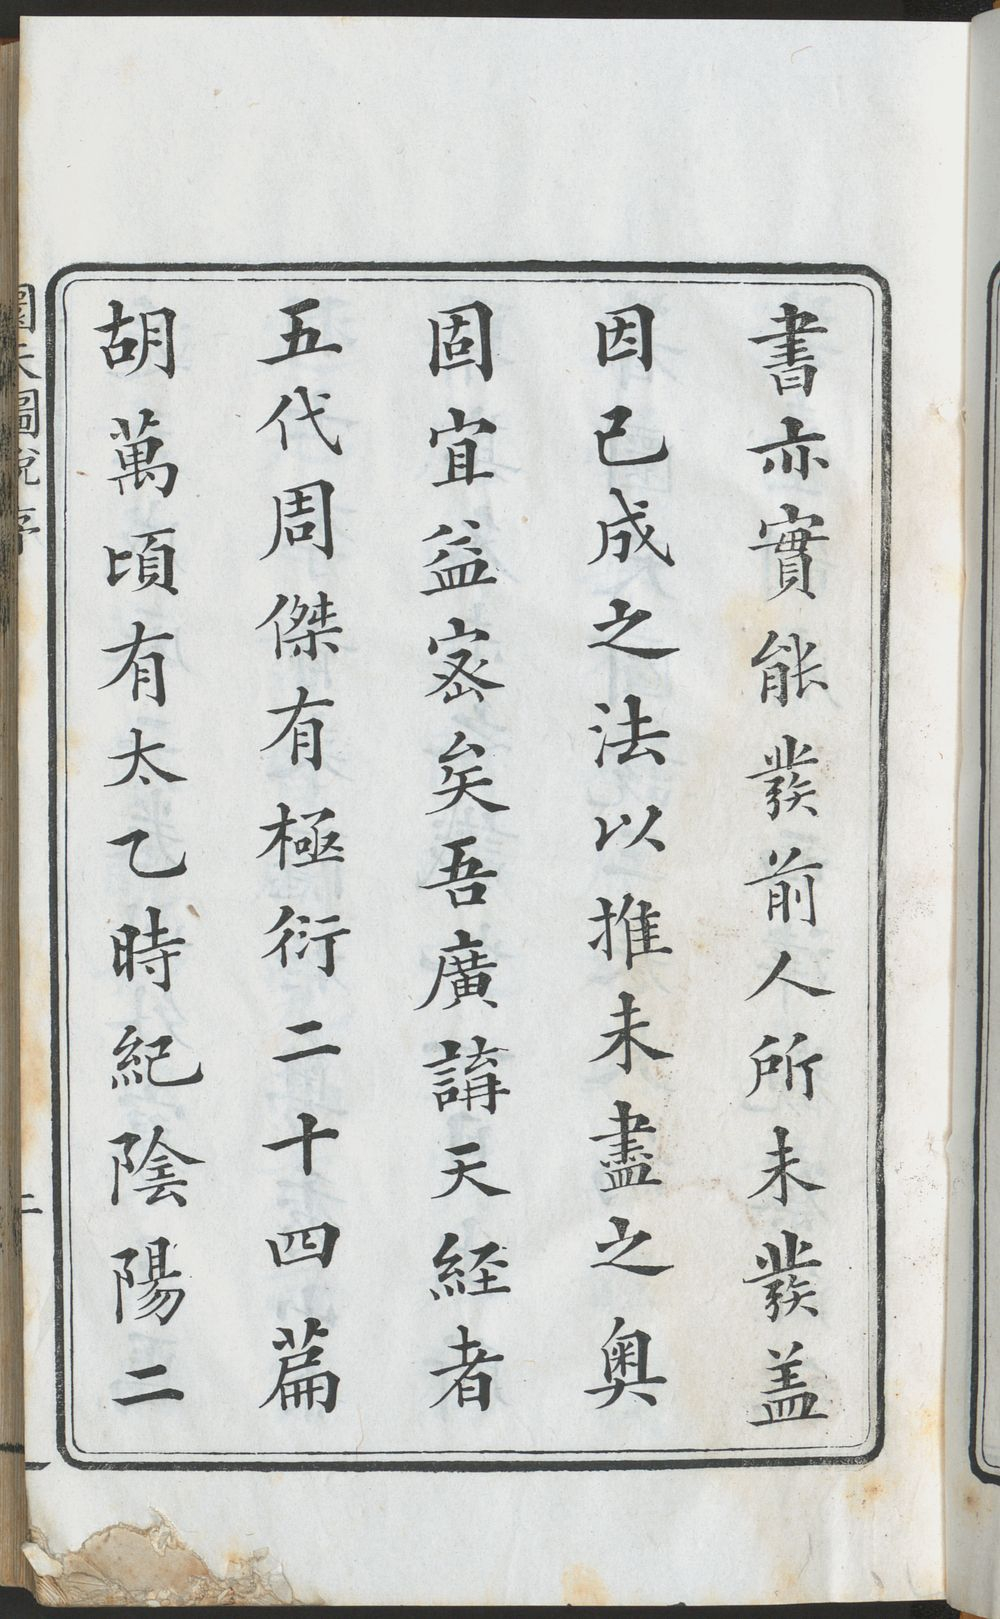 書亦實能發前人所未發盖
因已成之法以推未盡之奥
固宜益宻矣吾廣講天經者
五代周傑有極衍二十四篇
胡萬頃有太乙時紀陰陽二
圜天圖說序
二